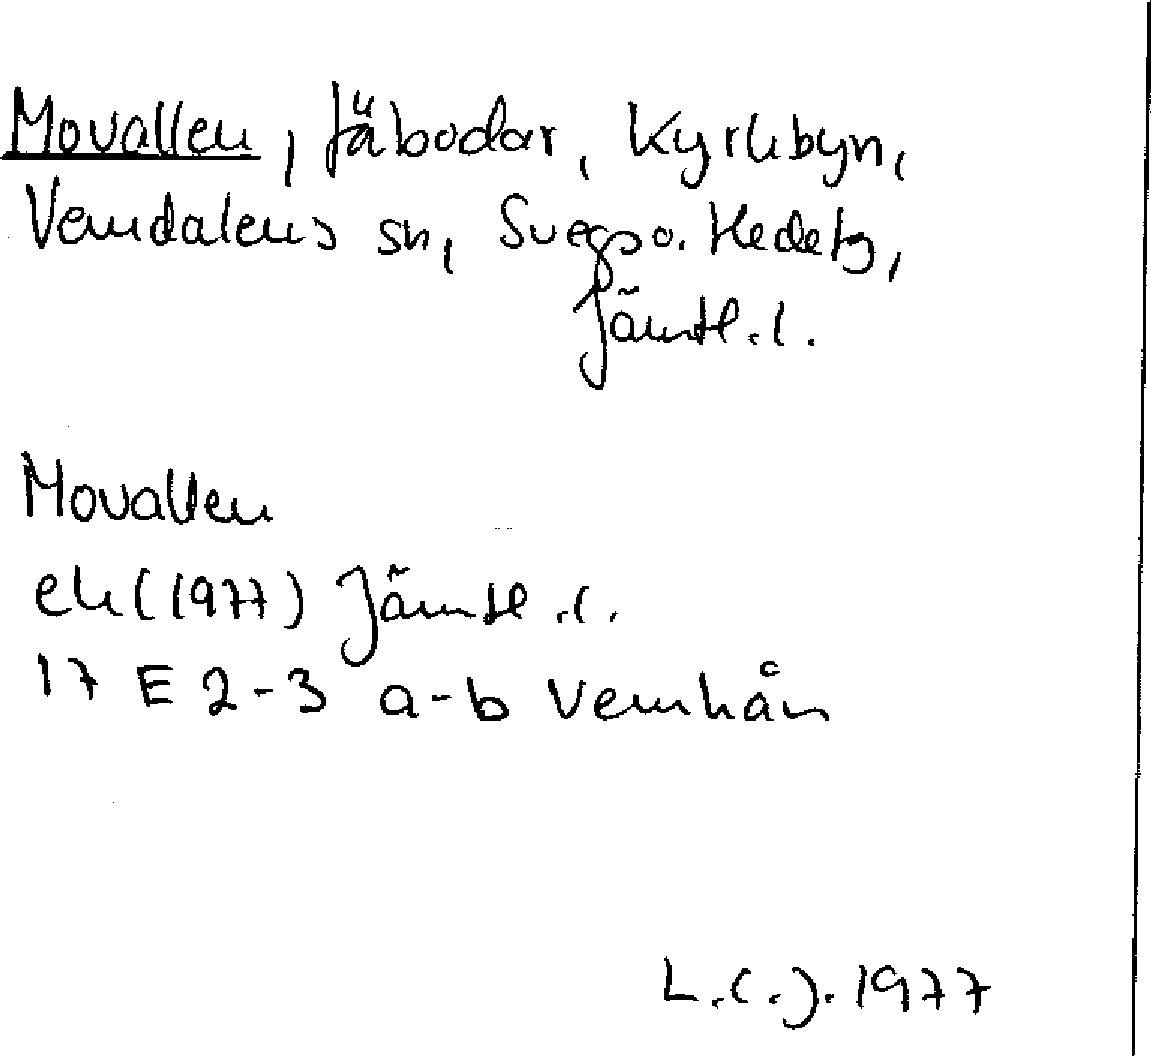 Movallen, fäbodar, Kyrkbyn,
Vemdalens sn, Svegs o. Hede tg,
Jämtl. l.
Movallen
ek (1977) Jämtl. l.
17 E 2-3 a-b Vemhån
L.C.J. 1977